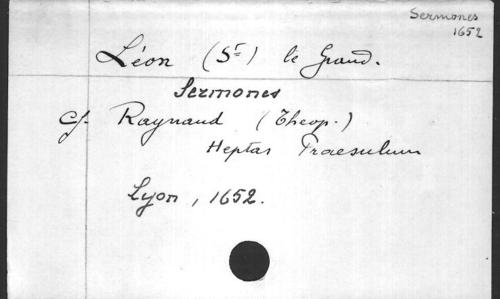 Sermones
1652
Léon (St) le Grand.
Sermones
cf. Raynaud (Theop.)
Heptas Praesulum
Lyon, 1652.